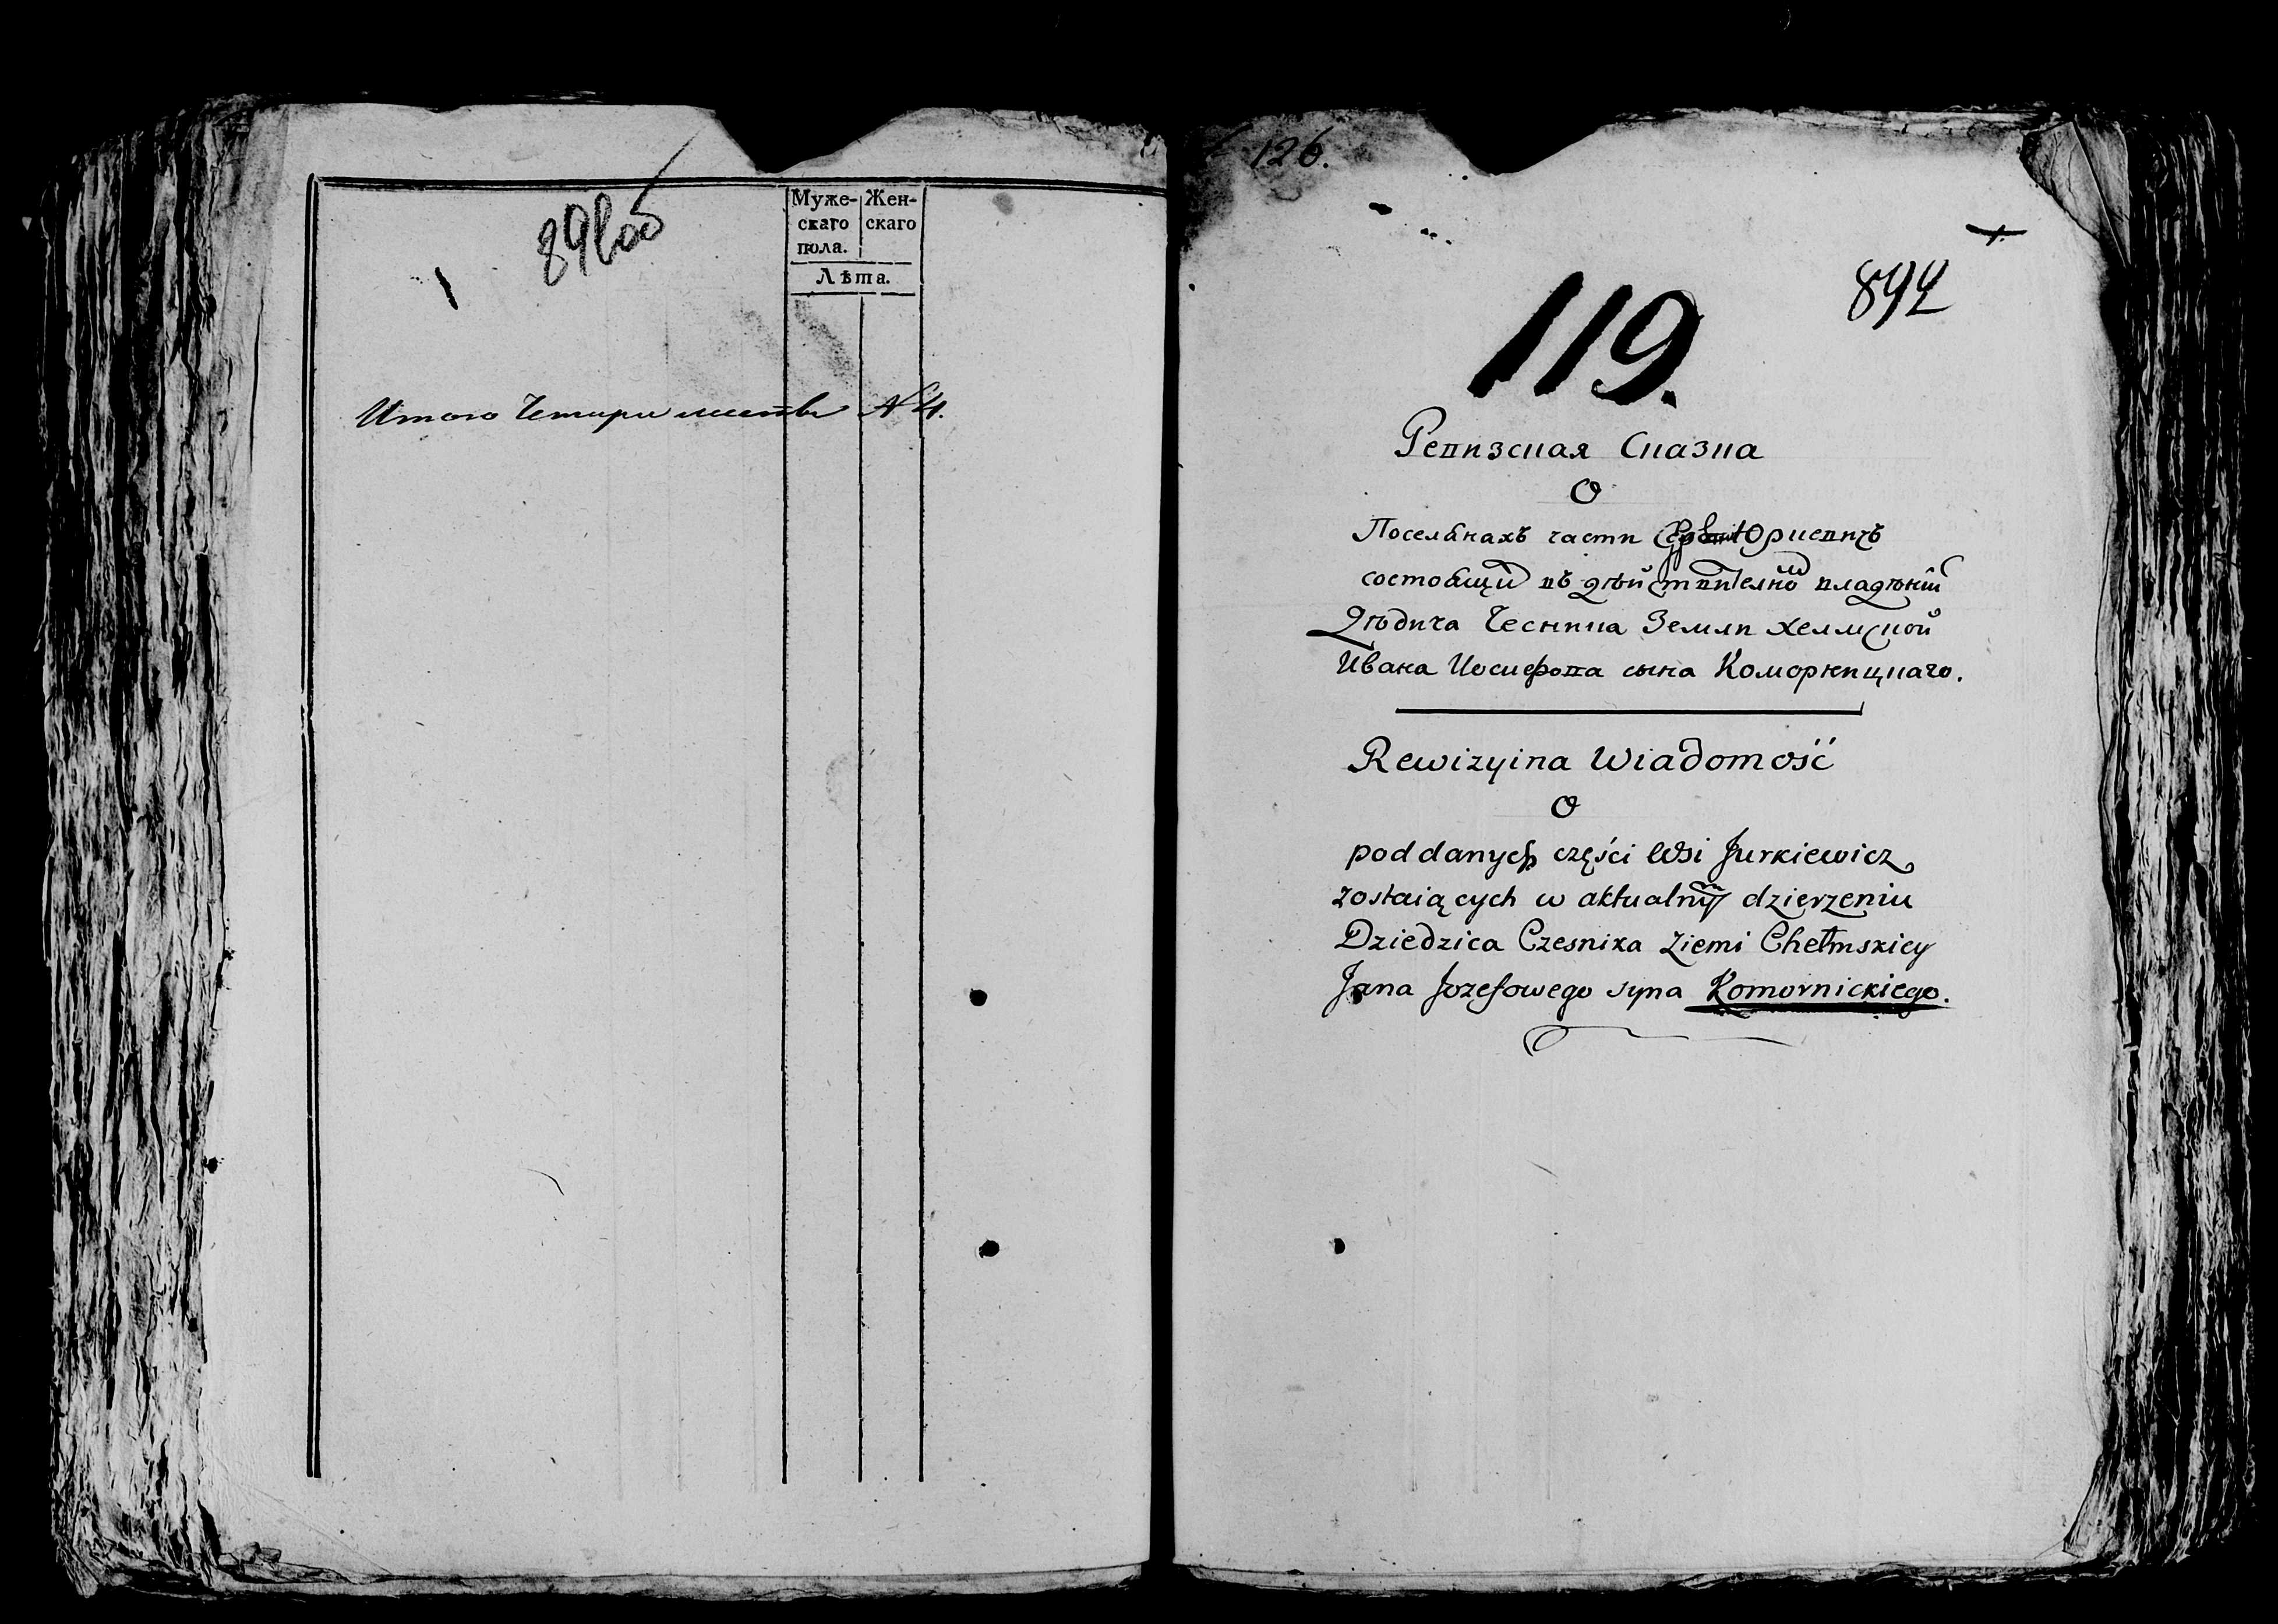 Муже-
скаго
пола.
Жен-
скаго
Лѣта.
Итого Четыри листы № 4.
126.
119.
Ревизская Сказка
О
Поселянахъ части Юркевичъ
состоящи въ дѣйствителной владѣнїи
Дѣдича Чесника Земли Хелмской
Ивана Иосифова сына Коморницкаго.
Rewizyina Wiadomość
O
poddanych części Wsi Jurkiewicz
zostaiących w aktualnym dzierzeniu
Dziedzica Czesnika Ziemi Chełmskiey
Jana Jozefowego syna Komornickiego.